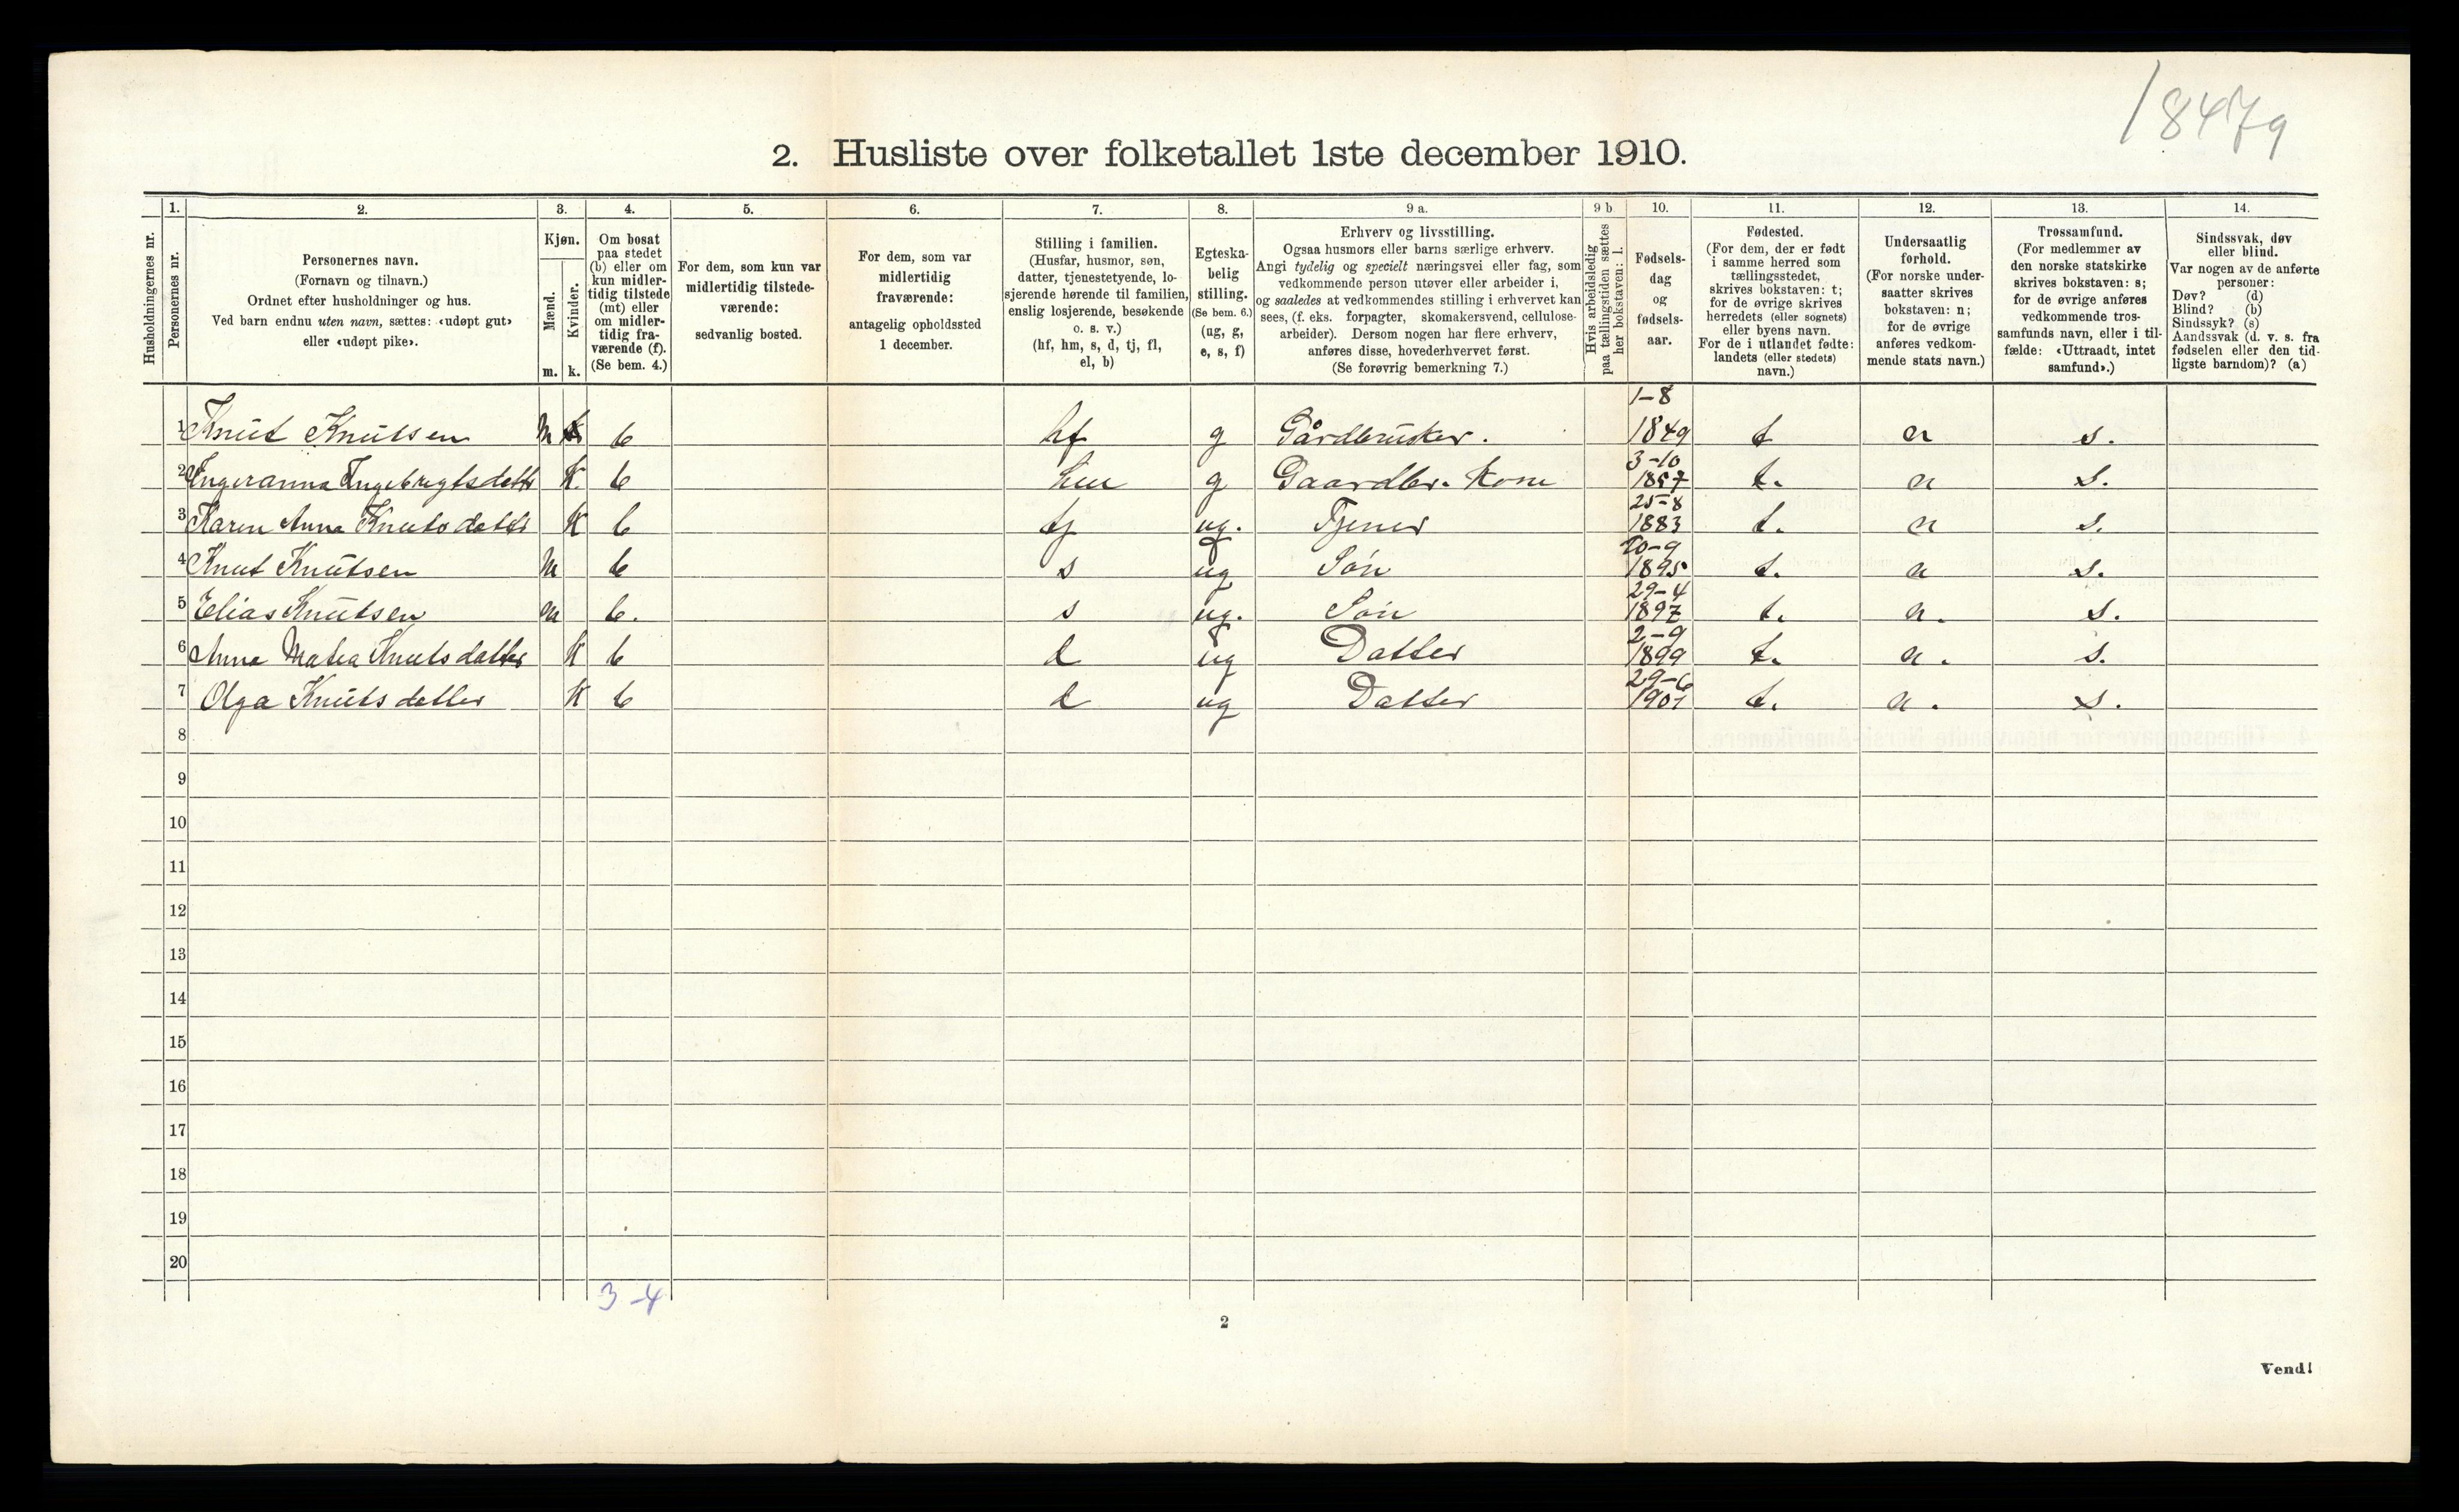 18479
2. Husliste over folketallet 1ste december 1910.
1. 2. 3. 4. 5. 6. 7. 8. 9 a. 9 b 10. 11. 12. 13. 14.
Husholdningernes nr.
Personernes nr.
Personernes navn.
(Fornavn og tilnavn.)
Ordnet efter husholdninger og hus.
Ved barn endnu uten navn, sættes: «udøpt gut»
eller «udøpt pike».
Kjøn.
Mænd.
Kvinder.
m. k.
Om bosat
paa stedet
(b) eller om
kun midler-
tidig tilstede
(mt) eller
om midler-
tidig fra-
værende (f).
(Se bem. 4.)
For dem, som kun var
midlertidig tilstede-
værende:
sedvanlig bosted.
For dem, som var
midlertidig
fraværende:
antagelig opholdssted
1 december.
Stilling i familien.
(Husfar, husmor, søn,
datter, tjenestetyende, lo-
sjerende hørende til familien,
enslig losjerende, besøkende
o. s. v.)
(hf, hm, s, d, tj, fl,
el, b)
Egteska-
belig
stilling.
(Se bem. 6.)
(ug, g,
e, s, f)
Erhverv og livsstilling.
Ogsaa husmors eller barns særlige erhverv.
Angi tydelig og specielt næringsvei eller fag, som
vedkommende person utøver eller arbeider i,
og saaledes at vedkommendes stilling i erhvervet kan
sees, (f. eks. forpagter, skomakersvend, cellulose-
arbeider). Dersom nogen har flere erhverv,
anføres disse, hovederhvervet først.
(Se forøvrig bemerkning 7.)
Hvis arbeidsledig
paa tællingstiden sættes
her bokstaven: l.
Fødsels-
dag
og
fødsels-
aar.
Fødested.
(For dem, der er født
i samme herred som
tællingsstedet,
skrives bokstaven: t;
for de øvrige skrives
herredets (eller sognets)
eller byens navn.
For de i utlandet fødte:
landets (eller stedets)
navn.)
Undersaatlig
forhold.
(For norske under-
saatter skrives
bokstaven: n;
for de øvrige
anføres vedkom-
mende stats navn.)
Trossamfund.
(For medlemmer av
den norske statskirke
skrives bokstaven: s;
for de øvrige anføres
vedkommende tros-
samfunds navn, eller i til-
fælde: «Uttraadt, intet
samfund».)
Sindssvak, døv
eller blind.
Var nogen av de anførte
personer:
Døv? (d)
Blind? (b)
Sindssyk? (s)
Aandssvak (d. v. s. fra
fødselen eller den tid-
ligste barndom)? (a)
1-8
1 Knut Knutsen m b hf g Gårdbruker. 1849 t n s.
3-10
2 Ingeranna Ingebrigtsdatter K. b hm g Gaardbr. Kone 1857 t. n s.
25-8
3 Karen Anna Knutsdatter K b tj ug. Tjener 1883 t. n s.
20-9
4 Knut Knutsen m b s ug Søn 1895 t. n s.
29-4
5 Elias Knutsen m b. s ug. Søn 1897 t. n. s.
2-9
6 Anna Matea Knutsdatter K b d ug Datter 1899 t. n. s.
29-6
7 Olga Knutsdatter K b d ug Datter 1901 t. n. s.
8
9
10
11
12
13
14
15
16
17
18
19
20
3-4
2
Vend!